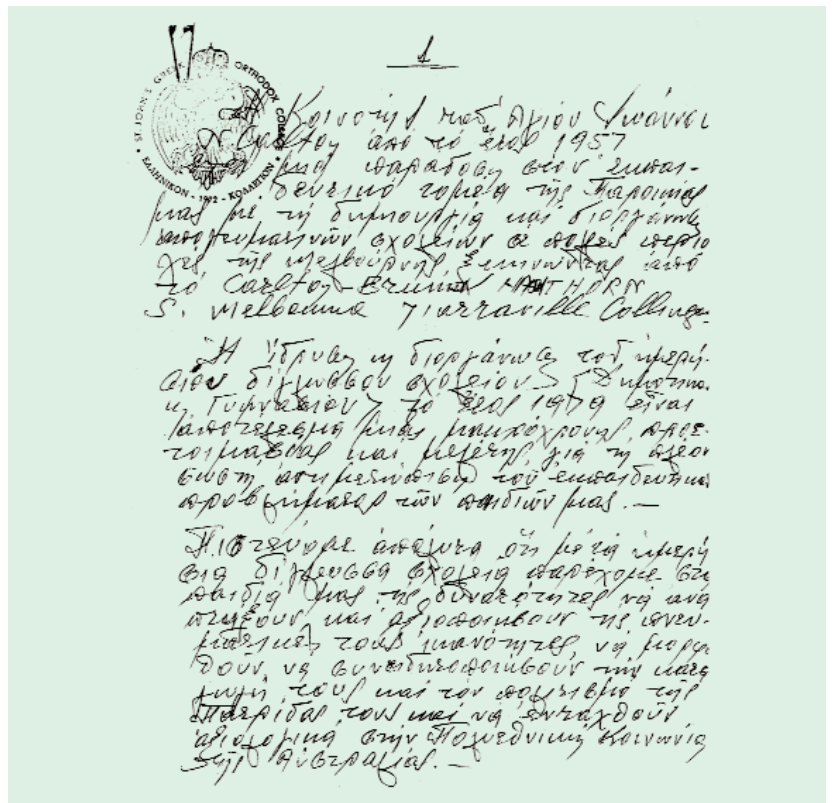 1
ST. JOHN'S GREEK ORTHODOX COLLEGE
ΕΛΛΗΝΙΚΟΝ - ΚΟΛΛΕΓΙΟΝ
Ἡ Κοινότης τοῦ Ἁγίου Ἰωάννου
Carlton ἀπό τό ἔτος 1957
μιά παράδοση στόν ἐκπαι-
δευτικό τομέα τῆς Παροικίας
μας μέ τή δημιουργία καί διοργάνωση
ἀπογευματινῶν σχολείων σέ πολλές περιο
χές τῆς Μελβούρνης ξεκινώντας ἀπό
τό Carlton - HAWTHORN
S. Melbourne Yarraville Collingw
Ἡ ἵδρυση κ διοργάνωση τοῦ ἡμερη-
σίου δίγλωσσου σχολείου Δημοτικο
κ Γυμνασίου τό ἔτος 1979 εἶναι
ἀποτέλεσμα μιᾶς μακρόχρονης προε-
τοιμασίας καί μελέτης γιά τή πλέον
σωστή ἀντιμετώπιση τοῦ ἐκπαιδευτικο
προβλήματος τῶν παιδιῶν μας. —
Πιστεύομε ἀπόλυτα ὅτι μέ τά ἡμερή
σια δίγλωσσα σχολεία παρέχομε στα
παιδιά μας τίς δυνατότητες νά ανα
πτύξουν καί ἀξιοποιήσουν τίς πνευ-
ματικές τους ἱκανότητες, νά μορφω
θοῦν, νά συνειδητοποιήσουν τήν κατα
γωγή τους καί τόν πολιτισμό τῆς
Πατρίδας τους καί νά ἐνταχθοῦν
ἀξιολογικά στήν Πολυεθνική Κοινωνία
τῆς Αὐστραλίας. —